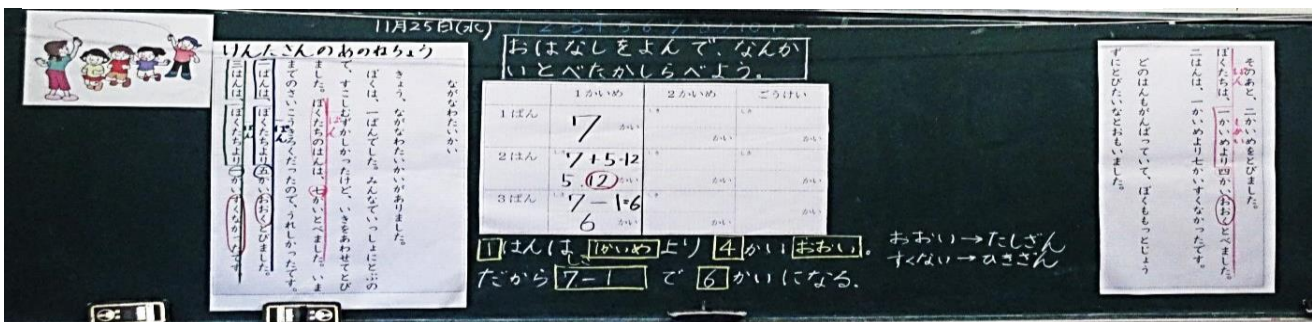 11月25日(水)
けんたさんのあのねちょう
ながなわたいかい
きょう、ながなわたいかいがありました。
ぼくは、一ぱんでした。みんなでいっしょにとぶの
て、すこしむずかしかったけど、いきをあわせてとび
ました。ぼくたちのはんは、七かいとべました。いま
までのさいこうきろくだったので、うれしかったです。
二はんは、ぼくたちより五かいおおくとびました。
三ぱんは、ぼくたちより一かいすくなかったです。
おはなしをよんで、なんか
いとべたかしらべよう。
1かいめ 2かいめ ごうけい
1ぱん 7 かい かい
2はん 7+5=12
5.12 かい かい かい
3ぱん 7-1=6
6 かい かい かい
1はんは、1かいめより4かいおおい。
しき
だから7-1で6かいになる。
おおい→たしざん
すくない→ひきざん
そのあと、二かいめをとびました。
ぼくたちは、一かいめより四かいおおくとべました。
二はんは、一かいめより七かいすくなかったです。
どのはんもがんばっていて、ぼくももっとじょう
ずにとびたいなとおもいました。